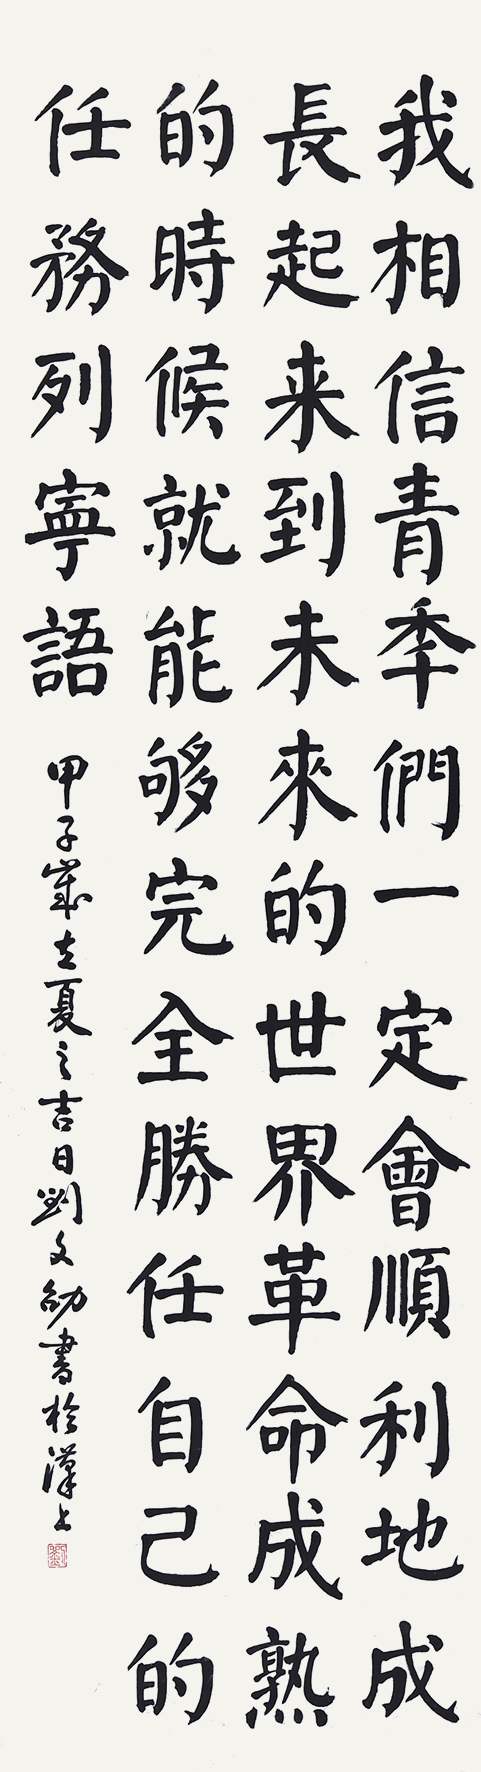 我相信青秊們一定會順利地成
長起来到未來的世界革命成熟
的時候就能够完全勝任自己的
任務列寧語
甲子歲立夏之吉日劉文劭書於漢上